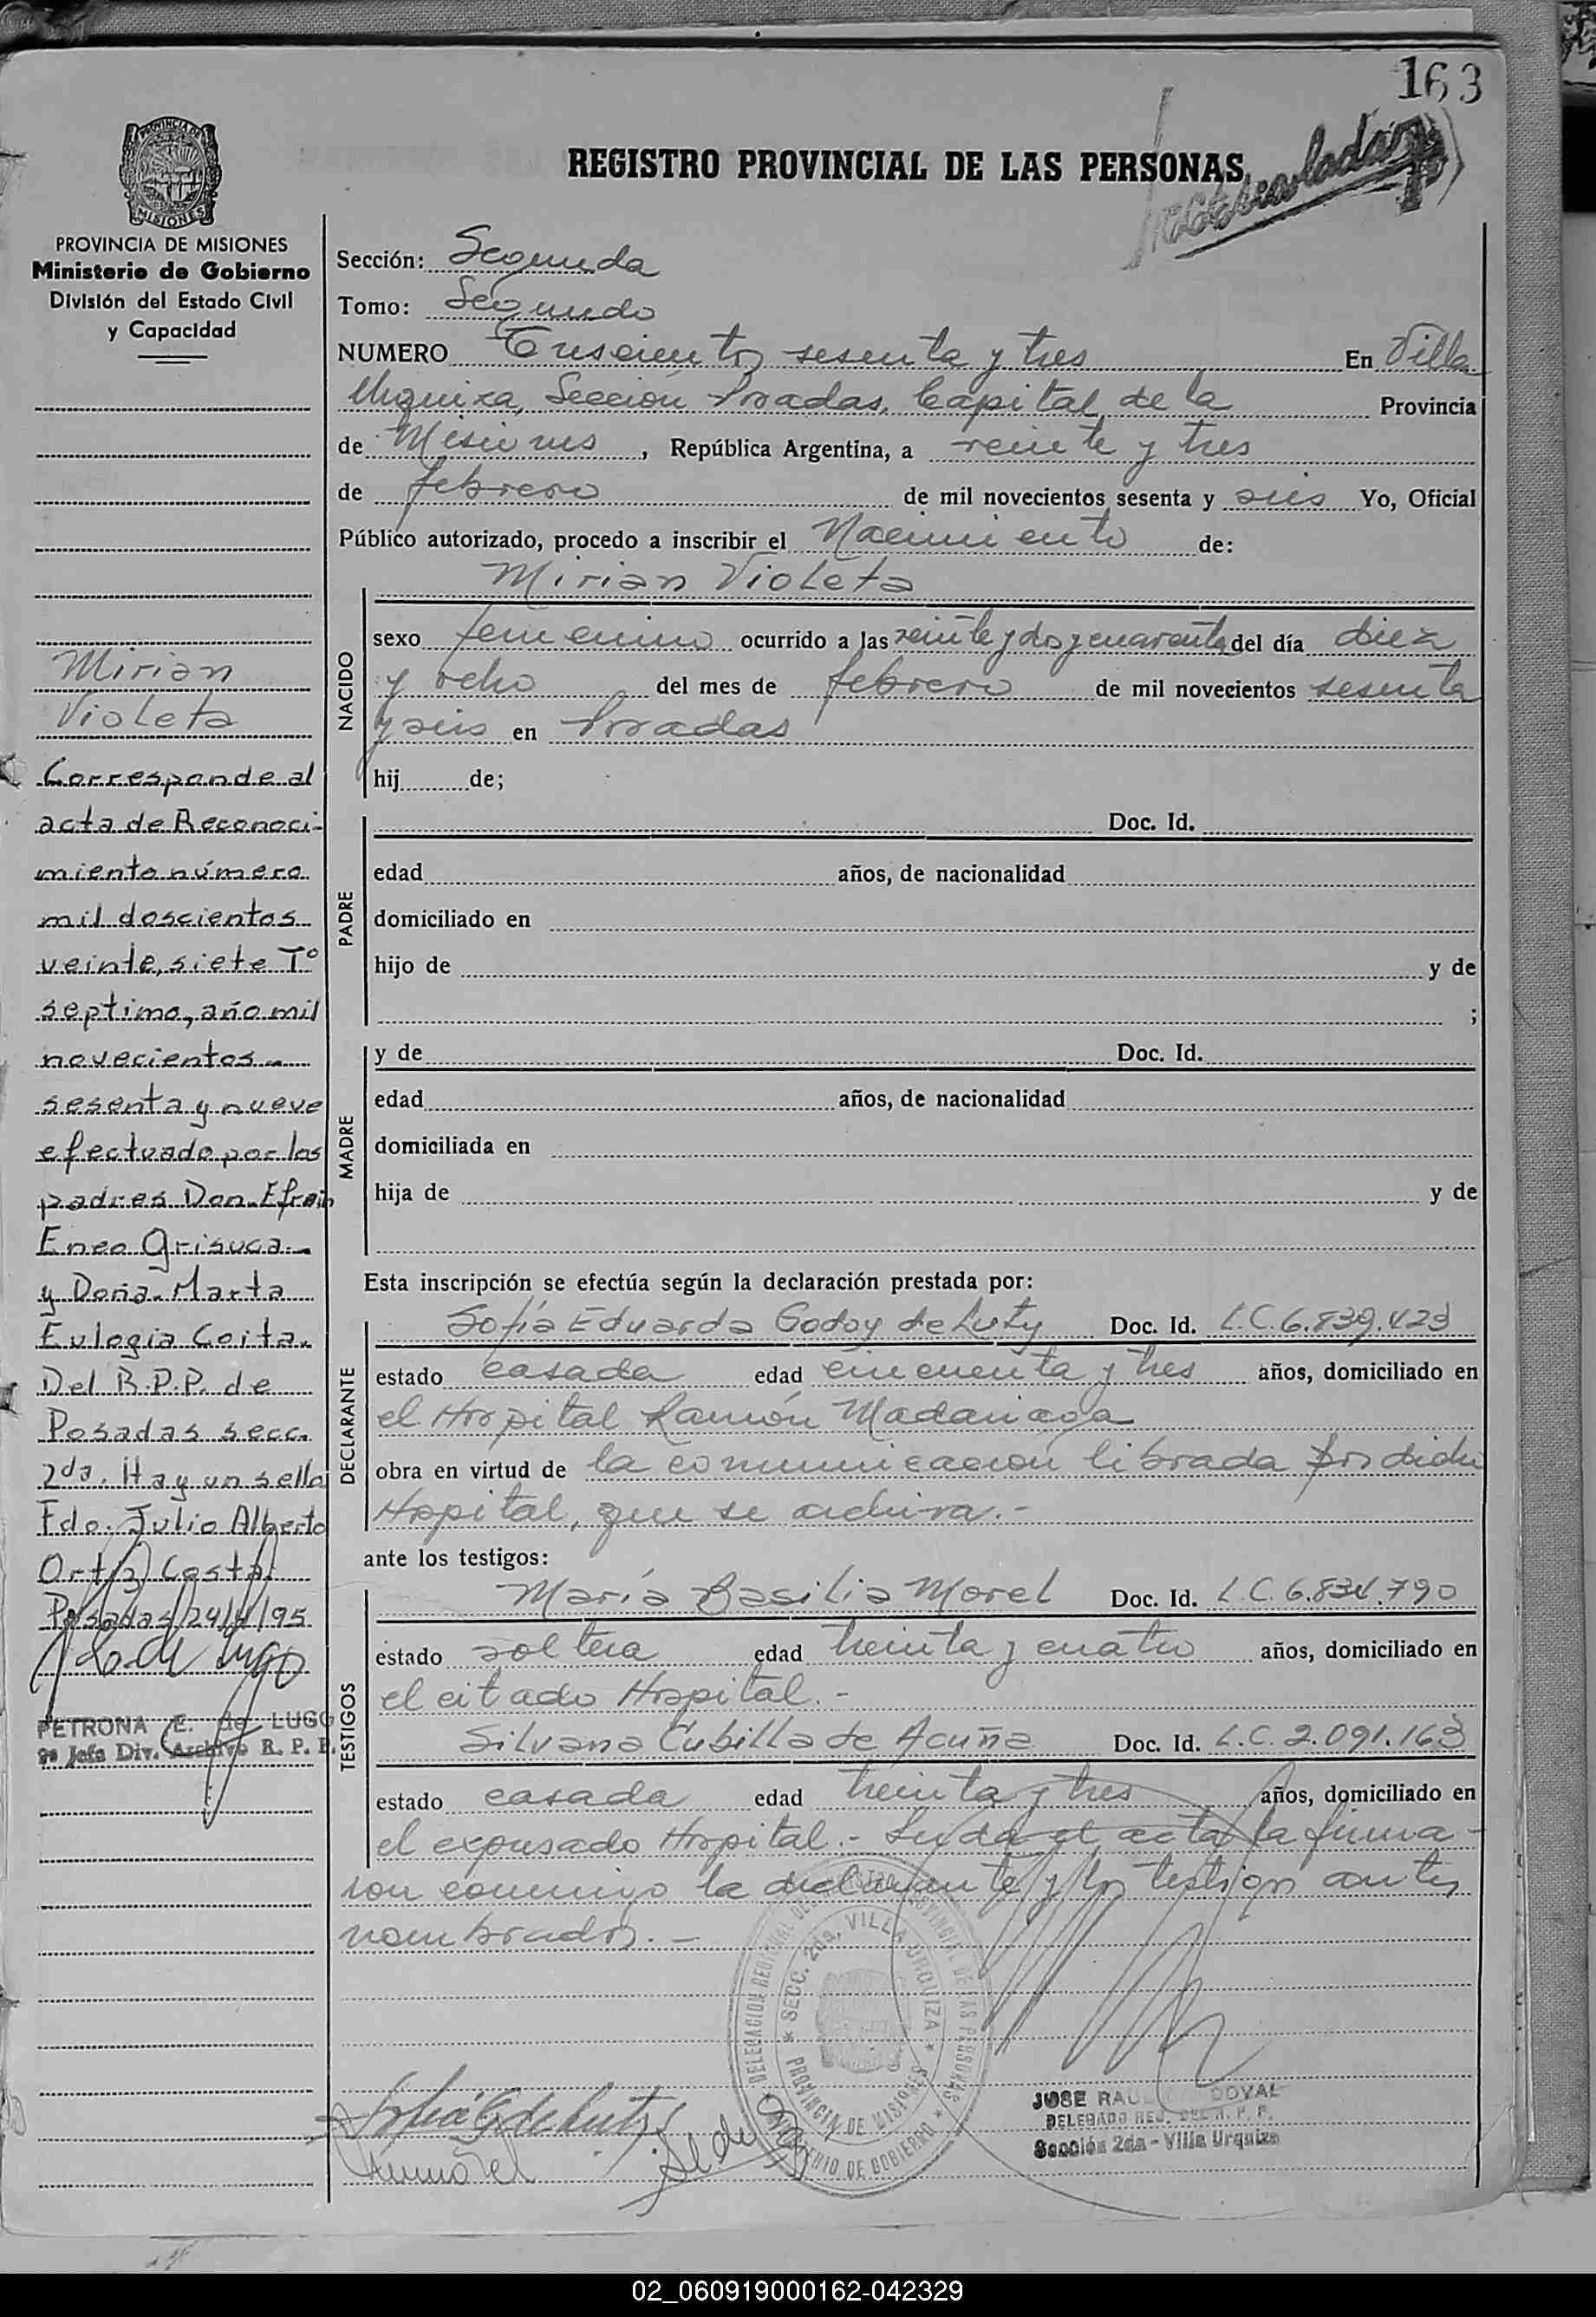 163
REGISTRO PROVINCIAL DE LAS PERSONAS
PROVINCIA DE MISIONES
PROVINCIA DE MISIONES
Ministerio de Gobierno
División del Estado Civil
y Capacidad
Mirian
Violeta
Corresponde al
acta de Reconoci-
miento número
mil doscientos
veinte, siete T°
septimo, año mil
novecientos
sesenta y nueve
efectuado por los
padres Don Efrain
Eneo Grisuca
y Doña Marta
Eulogia Coita.
Del R.P.P. de
Posadas secc.
2da. Hay un sello
Fdo. Julio Alberto
Ortiz Costa
Posadas 24/ /95
PETRONA E. de LUGO
Jefa Div. Archivo R. P. P.
Sección: Segunda
Tomo: Segundo
NUMERO Trescientos sesenta y tres En Villa
Urquiza, Sección Posadas, Capital de la Provincia
de Misiones, República Argentina, a veinte y tres
de febrero de mil novecientos sesenta y seis Yo, Oficial
Público autorizado, procedo a inscribir el Nacimiento de:
Mirian Violeta
NACIDO
sexo femenino ocurrido a las veinte y dos y cuarenta del día diez
y ocho del mes de febrero de mil novecientos sesenta
y seis en Posadas
hij de;
PADRE
Doc. Id.
edad años, de nacionalidad
domiciliado en
hijo de y de
;
MADRE
y de Doc. Id.
edad años, de nacionalidad
domiciliada en
hija de y de
Esta inscripción se efectúa según la declaración prestada por:
DECLARANTE
Sofía Eduarda Godoy de Doc. Id. L.C. 6.839.423
estado casada edad cincuenta y tres años, domiciliado en
el Hospital Ramón Madariaga
obra en virtud de la comunicación librada por dicho
Hospital, que se archiva.-
ante los testigos:
TESTIGOS
María Basilia Morel Doc. Id. L.C. 6.834.790
estado soltera edad treinta y cuatro años, domiciliado en
el citado Hospital.-
Silvana Cubilla de Acuña Doc. Id. L.C. 2.091.163
estado casada edad treinta y tres años, domiciliado en
el expresado Hospital.- Leída el acta la firma-
ron conmigo la declarante y los testigos antes
nombrados.-
SECC. 2da. VILLA URQUIZA
PROVINCIA DE MISIONES
JOSE RAUL DOVAL
DELEGADO REG. DEL R. P. P.
Sección 2da - Villa Urquiza
02_060919000162-042329